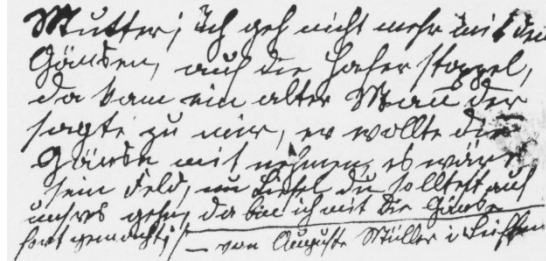 Mutter; ich geh nicht mehr mit den
Gänsen, auf die Haferstoppel,
da kam ein alter Mann der
sagte zu mir, er wollte die
Gänse mit nehmen, es wäre
sein Feld, du solltest auf
unsres gehn, da bin ich mit die Gänse
fort gemacht; / — von Auguste Müller i. Seiffen